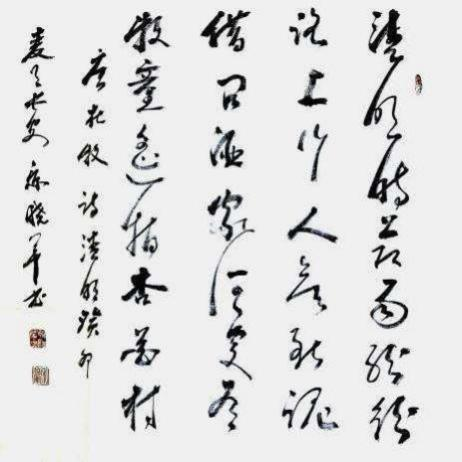 清明時节雨纷纷
路上行人欲断魂
借问酒家何处有
牧童遥指杏花村
唐杜牧诗清明癸卯
夏长安晓军书